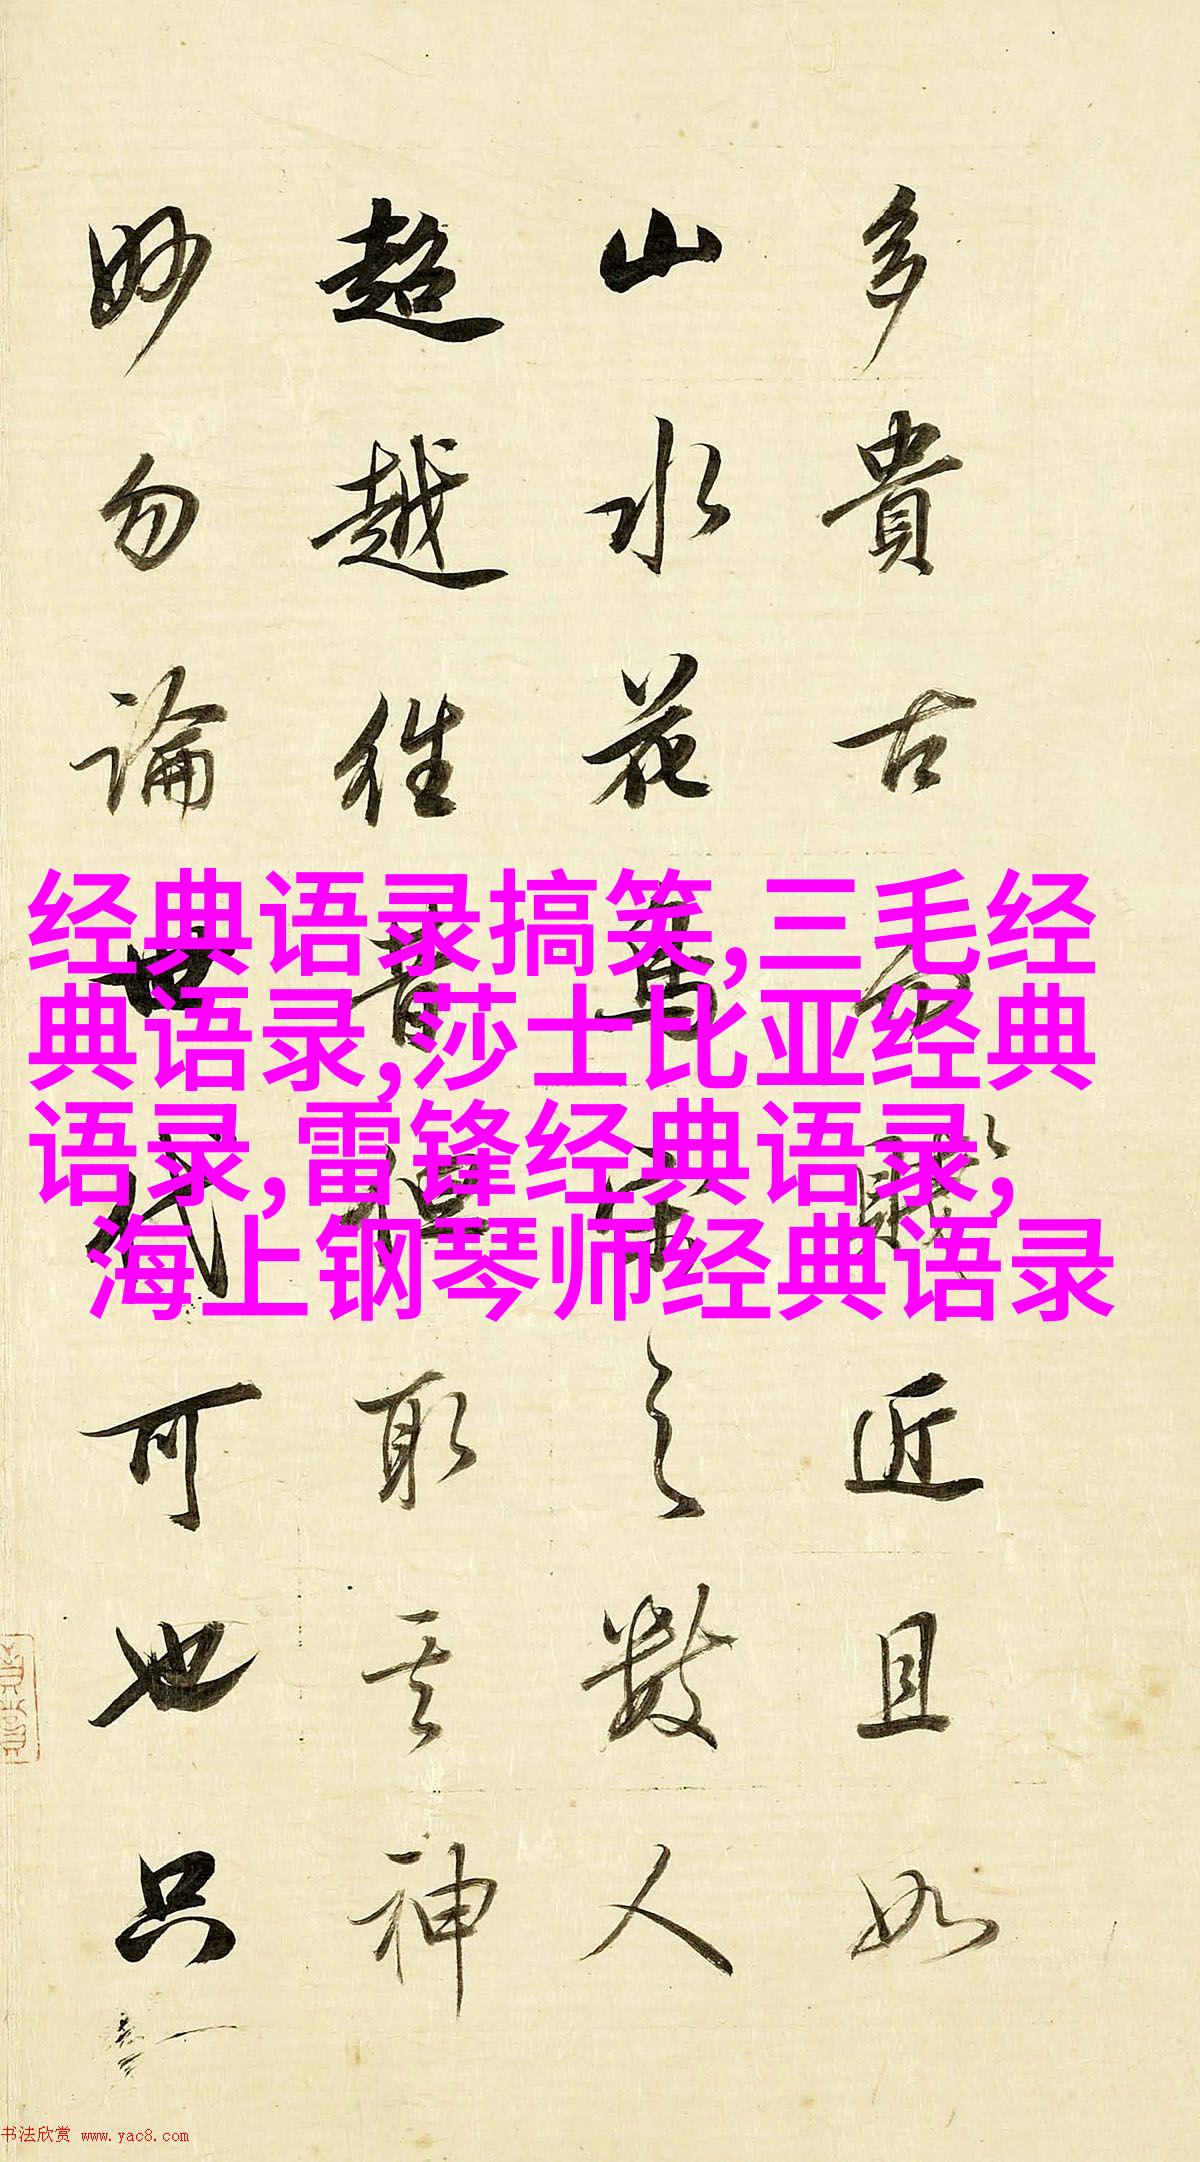 多貴古賤近且如
山水花鳥宋之數人
超越往昔但取其神
妙勿論世代可也只
经典语录搞笑,三毛经
典语录,莎士比亚经典
语录,雷锋经典语录,
海上钢琴师经典语录
书法欣赏 www.yac8.com